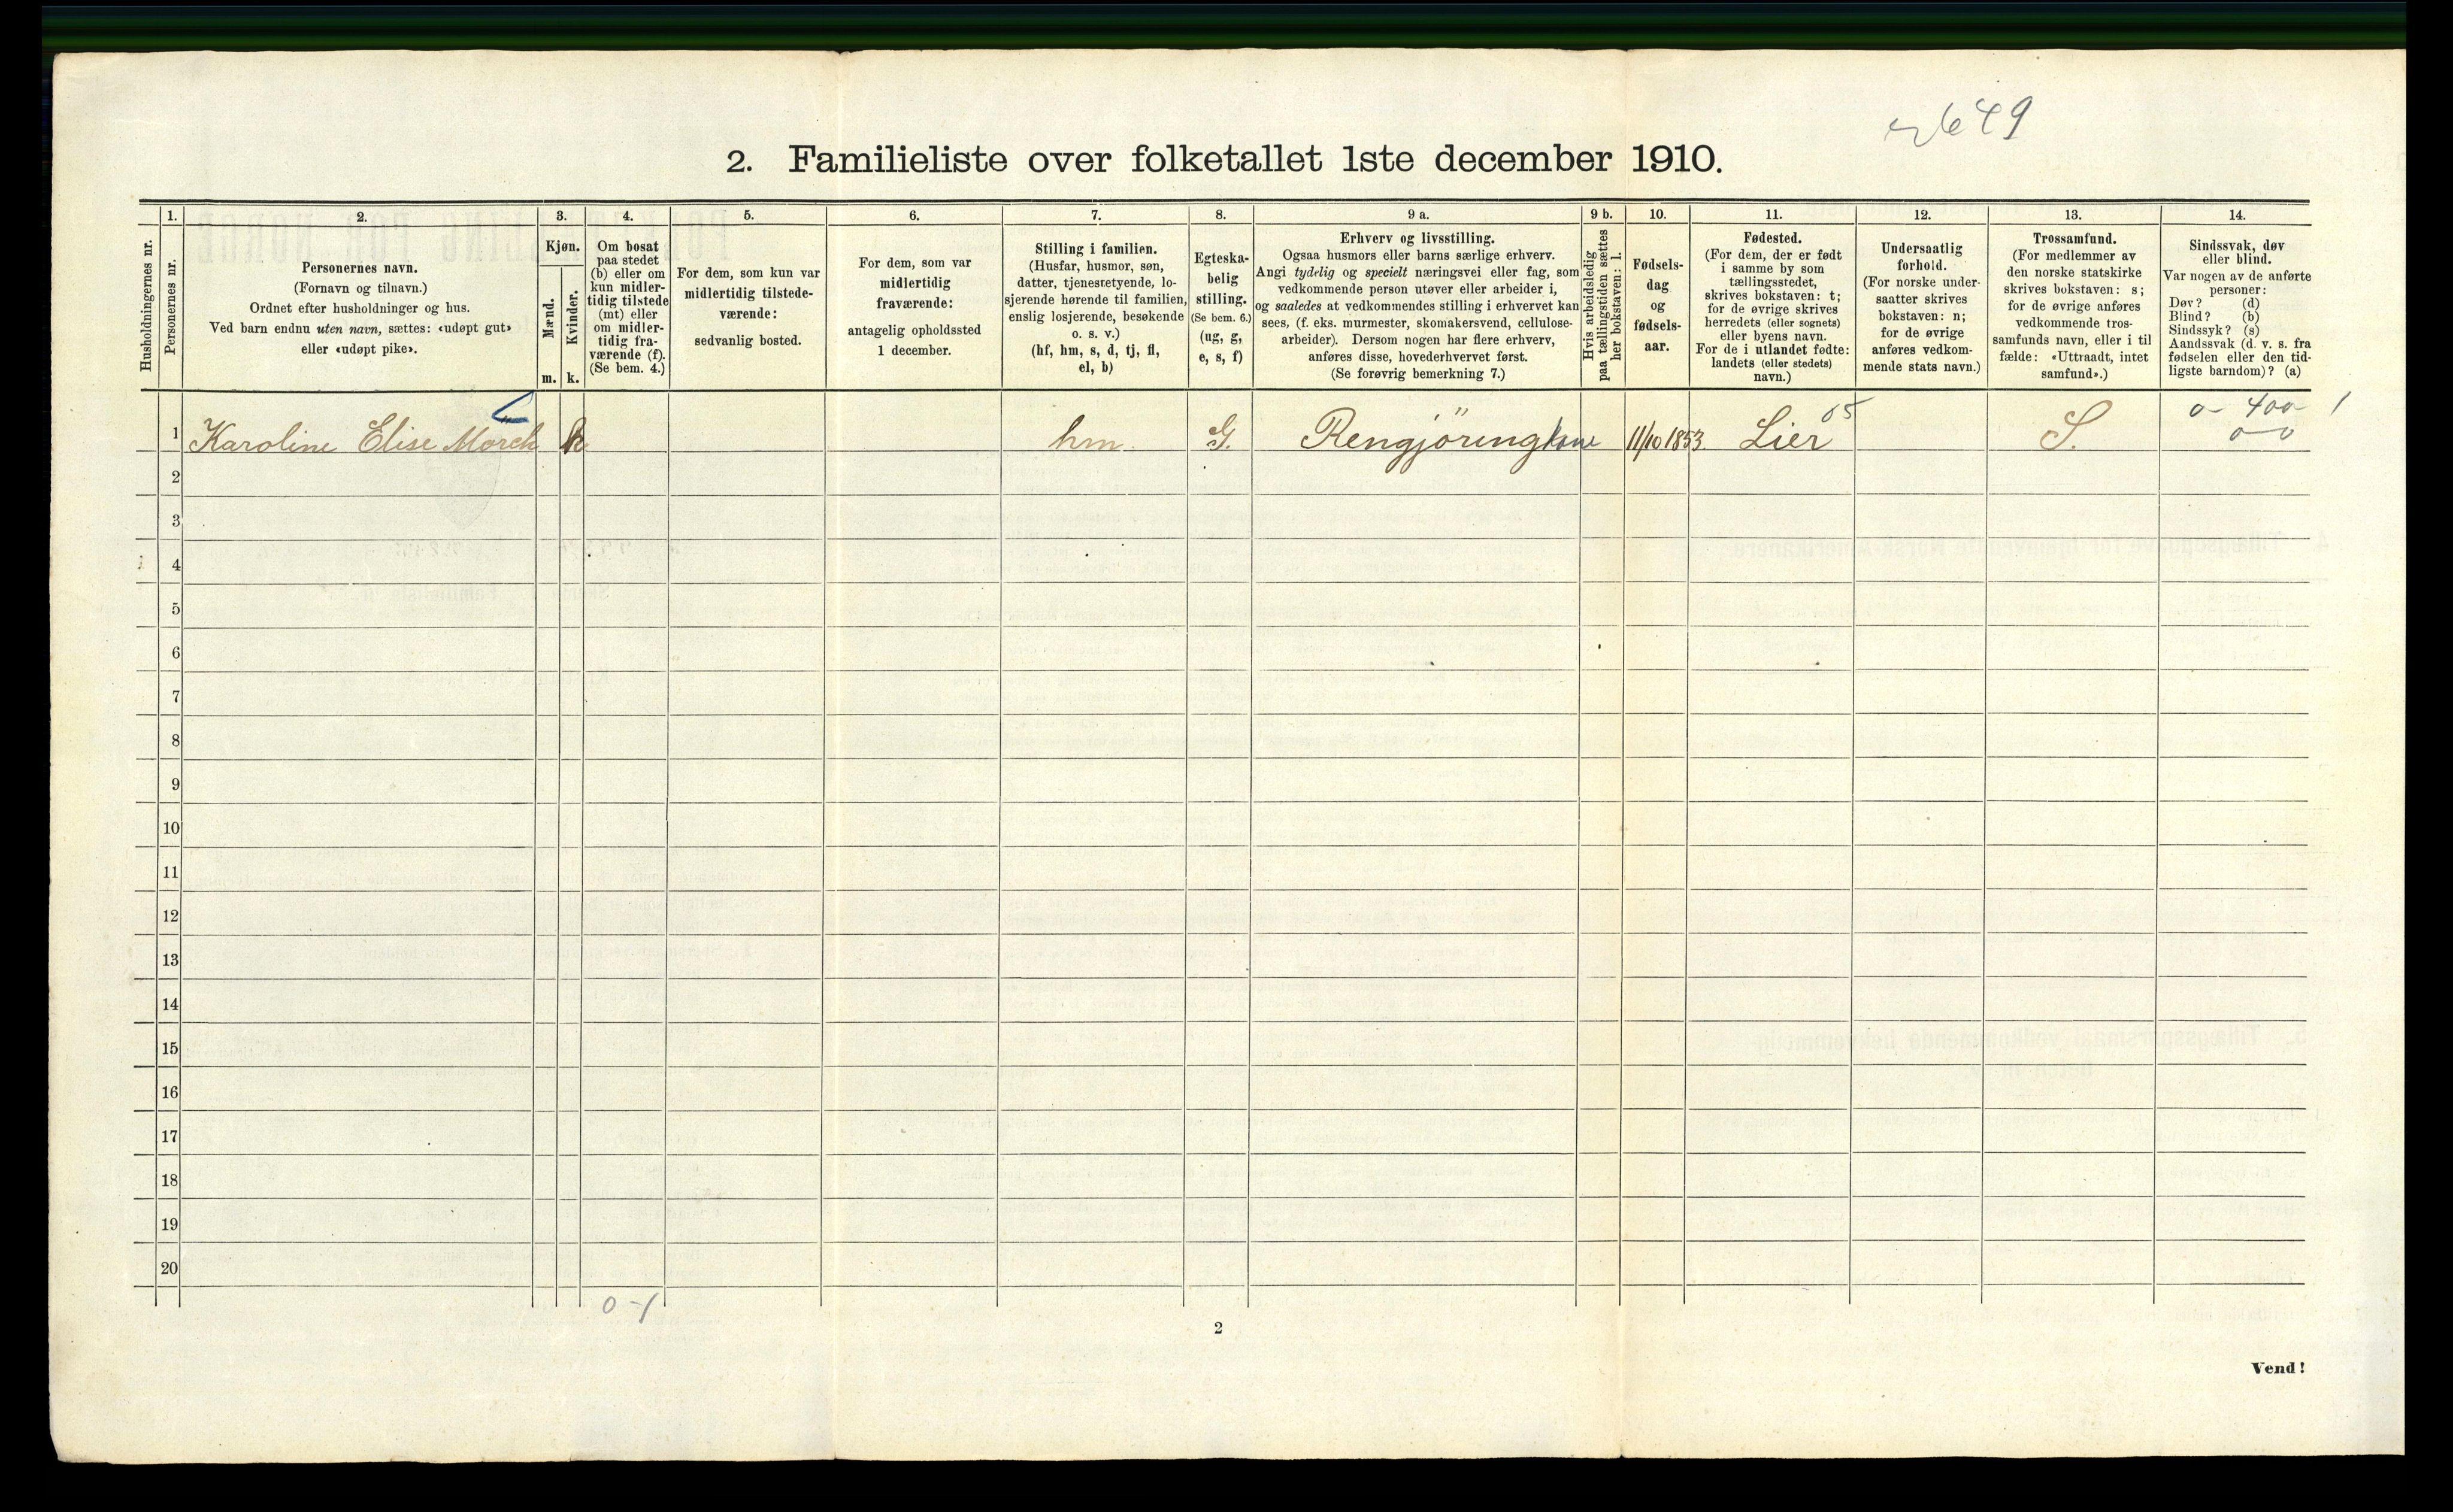 649
2. Familieliste over folketallet 1ste december 1910.
Husholdningernes nr.
1.
Personernes nr.
2.
Personernes navn.
(Fornavn og tilnavn.)
Ordnet efter husholdninger og hus.
Ved barn endnu uten navn, sættes: «udøpt gut»
eller «udøpt pike».
3.
Kjøn.
Mænd.
Kvinder.
m. k.
4.
Om bosat
paa stedet
(b) eller om
kun midler-
tidig tilstede
(mt) eller
om midler-
tidig fra-
værende (f).
(Se bem. 4.)
5.
For dem, som kun var
midlertidig tilstede-
værende:
sedvanlig bosted.
6.
For dem, som var
midlertidig
fraværende:
antagelig opholdssted
1 december.
7.
Stilling i familien.
(Husfar, husmor, søn,
datter, tjenestetyende, lo-
sjerende hørende til familien,
enslig losjerende, besøkende
o. s. v.)
(hf, hm, s, d, tj, fl,
el, b)
8.
Egteska-
belig
stilling.
(Se bem. 6.)
(ug, g,
e, s, f)
9 a.
Erhverv og livsstilling.
Ogsaa husmors eller barns særlige erhverv.
Angi tydelig og specielt næringsvei eller fag, som
vedkommende person utøver eller arbeider i,
og saaledes at vedkommendes stilling i erhvervet kan
sees, (f. eks. murmester, skomakersvend, cellulose-
arbeider). Dersom nogen har flere erhverv,
anføres disse, hovederhvervet først.
(Se forøvrig bemerkning 7.)
9 b.
Hvis arbeidsledig
paa tællingstiden sættes
her bokstaven: l.
10.
Fødsels-
dag
og
fødsels-
aar.
11.
Fødested.
(For dem, der er født
i samme by som
tællingsstedet,
skrives bokstaven: t;
for de øvrige skrives
herredets (eller sognets)
eller byens navn.
For de i utlandet fødte:
landets (eller stedets)
navn.)
12.
Undersaatlig
forhold.
(For norske under-
saatter skrives
bokstaven: n;
for de øvrige
anføres vedkom-
mende stats navn.)
13.
Trossamfund.
(For medlemmer av
den norske statskirke
skrives bokstaven: s;
for de øvrige anføres
vedkommende tros-
samfunds navn, eller i til
fælde: «Uttraadt, intet
samfund».)
14.
Sindssvak, døv
eller blind.
Var nogen av de anførte
personer:
Døv? (d)
Blind? (b)
Sindssyk? (s)
Aandssvak (d. v. s. fra
fødselen eller den tid-
ligste barndom)? (a)
05 0 - 400 - 1
1 Karoline Elise Morch k hm. G. Rengjöringkone 11/10 1853. Lier S. 0-0
2
3
4
5
6
7
8
9
10
11
12
13
14
15
16
17
18
19
20
0-1
2
Vend!